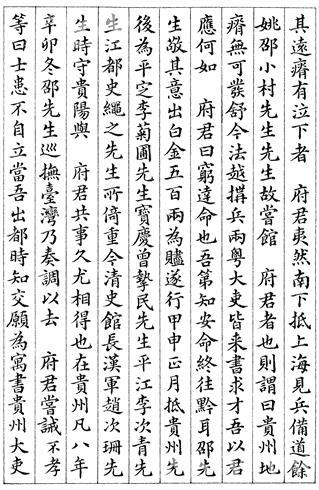 其遠瘠有泣下者　府君夷然南下抵上海見兵備道餘
姚邵小村先生先生故嘗館　府君者也則謂曰貴州地
瘠無可發舒今法越搆兵兩粵大吏皆來書求才吾以君
應何如　府君曰窮達命也吾第知安命終往黔耳邵先
生敬其意出白金五百兩為贐遂行甲申正月抵貴州先
後為平定李菊圃先生寶慶曾摯民先生平江李次青先
生江都史繩之先生所倚重今清史館長漢軍趙次珊先
生時守貴陽與　府君共事久尤相得也在貴州凡八年
辛卯冬邵先生巡撫臺灣乃奏調以去　府君嘗誡不孝
等曰士患不自立當吾出都時知交願為寓書貴州大吏